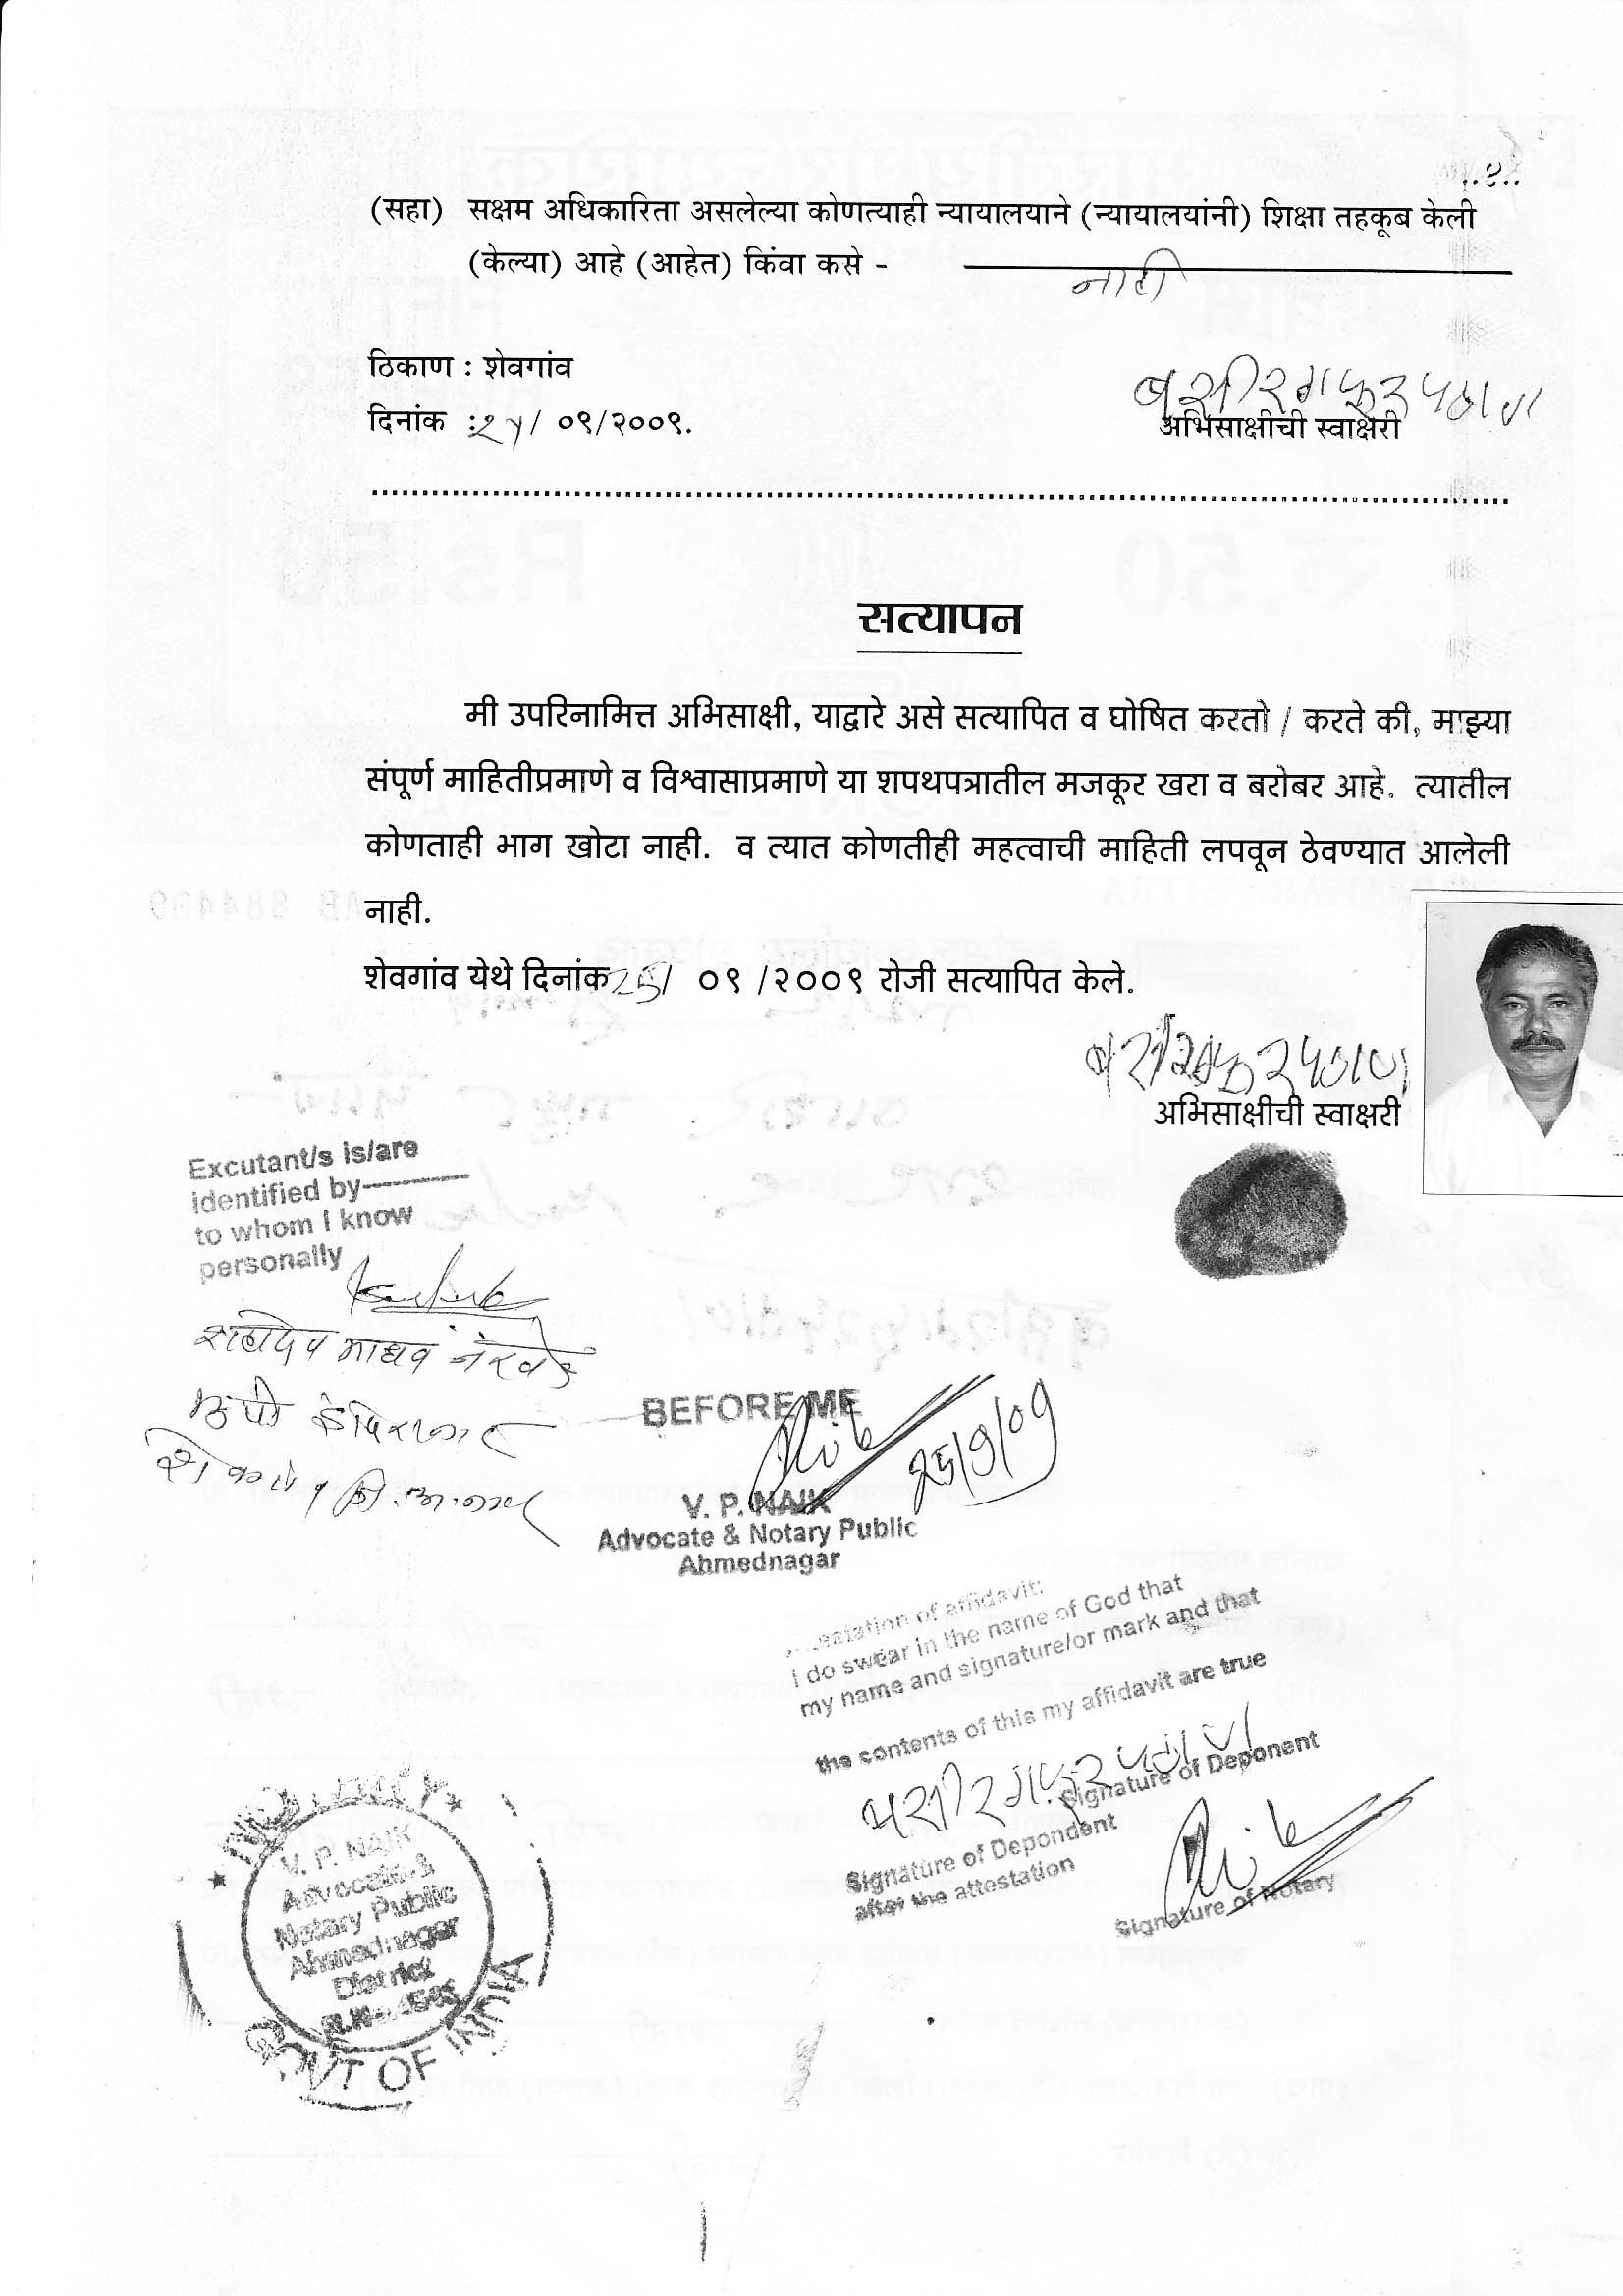 ..२..
(सहा) सक्षम अधिकारिता असलेल्या कोणत्याही न्यायालयाने (न्यायालयांनी) शिक्षा तहकूब केली
(केल्या) आहे (आहेत) किंवा कसे -
नाही
ठिकाण : शेवगांव
बशीर गफुर पठाण
दिनांक :२५/ ०९/२००९.
अभिसाक्षीची स्वाक्षरी
सत्यापन
मी उपरिनामित्त अभिसाक्षी, याद्वारे असे सत्यापित व घोषित करतो / करते की, माझ्या
संपूर्ण माहितीप्रमाणे व विश्वासाप्रमाणे या शपथपत्रातील मजकूर खरा व बरोबर आहे. त्यातील
कोणताही भाग खोटा नाही. व त्यात कोणतीही महत्वाची माहिती लपवून ठेवण्यात आलेली
नाही.
शेवगांव येथे दिनांक 25/ ०९ /२००९ रोजी सत्यापित केले.
बशीर गफुर पठाण
अभिसाक्षीची स्वाक्षरी
Excutant/s is/are
identified by-----------
to whom I know
personally
सहादेव माधव
BEFORE ME
25/9/09
V. P. NAIK
Advocate & Notary Public
Ahmednagar
of affidavit:
I do swear in the name of God that
my name and signature/or mark and that
the contents of this my affidavit are true
बशीर गफुर पठाण
Signature of Deponent
Signature of Depondent
after the attestation
Signature of Notary
V. P. NAIK
Advocate &
Notary Public
Ahmednagar
District
GOVT OF INDIA